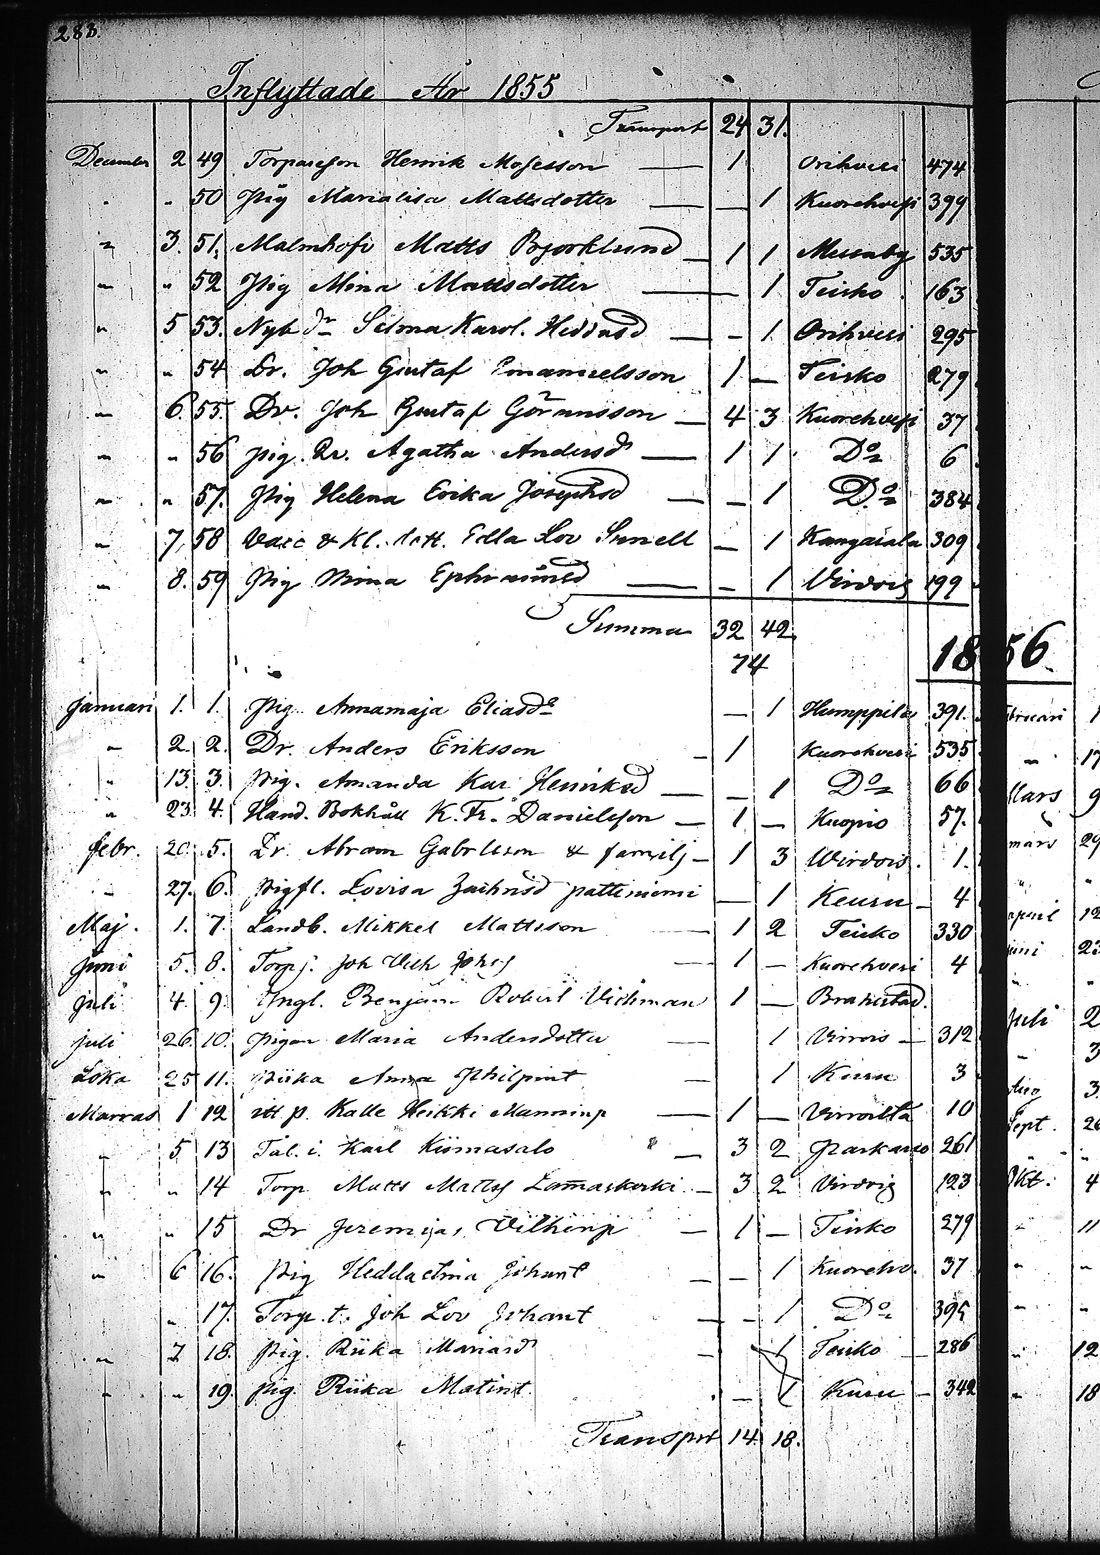 288.
Inflyttade År 1855
Transport 24 31.
December 2 49 Torpareson Henrik Mosesson — 1 Orihvesi 474
" 50 Pig Marialisa Mattsdotter — — 1 Kuorehvesi 399
" 3. 51. Matts Bjorklund — 1 1 535
" " 52 Pig Mina Mattsdotter — 1 Teisko 163
" 5 53. Nyb dr Selma Karol. — - 1 Orihvesi 295
" " 54 Dr. Joh Gustaf Emanuelsson 1 — Teisko 279
" 6. 55. Dr. Joh Gustaf Göransson — 4 3 Kuorehvesi 37
" " 56 pig. Agatha Andersd — 1 1 Do 6
" " 57. Pig Helena Erika Josephsd — - 1 Do 384
" 7, 58 & Kl. dott. Edla Lov Sunell — 1 Kangasala 309
" 8. 59 Pig Mina Ephraimsd — - 1 Virdois 199
Summa 32 42
74
1856
Januari 1. 1. Pig. Annamaja Eliasdr — 1 Humppila 391.
" 2. 2. Dr. Anders Eriksson - 1 Kuorehvesi 535
" 13. 3. Pig. Amanda Kar Henriksd — — 1 Do 66
" 23 4. Hand. Bokhåll K. Fr. Danielsson — 1 — Kuopio 57.
febr. 20. 5. Dr. Abram Gabrlsson & familj — 1 3 Wirdois. 1.
" 27. 6. Pigfl. Lovisa — 1 Keuru — 4
Maj. 1. 7. Landb. Mikkel Mattsson — 1 2 Teisko 330
Juni 5. 8. Torpj. Joh Vilh — 1 — Kuorehvesi 4
juli 4. 9. Yngl. Benjam Robert Vichman 1 — Brahestad.
juli 26. 10. pigan Maria Andersdotter — 1 Virrois — 312
Loka 25 11. Piika Anna Philpint — 1 Kuru 3
Marras 1 12 Kalle Heikki — 1 — Virroilta 10
" 5 13 Tal. i. Karl Kiimasalo — 3 2 Parkano 261
" " 14 Torp. Matts — 3 2 Virdois 123
" " 15 Dr Jeremijas — 1 — Teisko 279
" 6 16. pig Johant — — 1 Kuorehv. 37
" 17. Torp. t. Joh Lov Johant — - 1 Do 395
" 7 18. Pig. Riika Mariasd — 1 Teisko — 286
" " 19. pig. Riika Matint. — 1 Kuru — 342
Transport 14 18.
1
" 17
Mars 9
mars 29
"
april 12
juni 23
"
Juli 2
" 3
Aug 3.
Sept. 26
"
Okt. 4
" 11
"
"
" 12
" 18